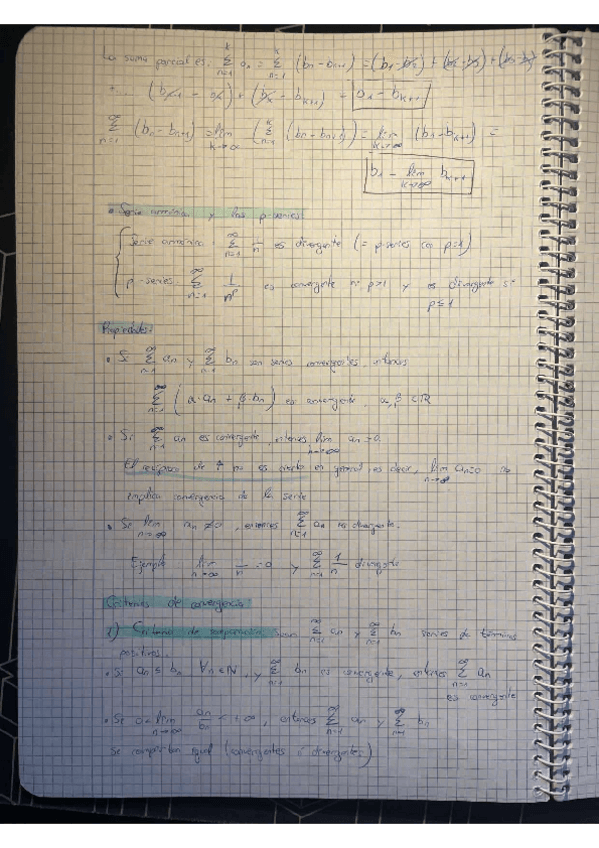 La suma parcial es. k Σ n=1 an = k Σ n=1 (bn - bn+1) = (b1 - b2) + (b2 - b3) + (b3 - b4)
+ ... (bk-1 - bk) + (bk - bk+1) = b1 - bk+1
∞ Σ n=1 (bn - bn+1) = lim k→∞ (k Σ n=1 (bn - bn+1)) = lim k→∞ (b1 - bk+1) =
b1 - lim k→∞ bk+1
• Serie armónica y las p-series:
Serie armónica: ∞ Σ n=1 1/n es divergente (= p-series con p=1)
p-series: ∞ Σ n=1 1/n^p es convergente si p>1 y es divergente si
p≤1
Propiedades:
• Si ∞ Σ n=1 an y ∞ Σ n=1 bn son series convergentes, entonces
∞ Σ n=1 (α·an + β·bn) es convergente, α, β ∈ ℝ
• Si ∞ Σ n=1 an es convergente, entonces lim n→∞ an = 0.
El recíproco de ↑ no es cierto en general es decir, lim n→∞ an=0 no
implica convergencia de la serie
• Si lim n→∞ an ≠0, entonces ∞ Σ n=1 an es divergente.
Ejemplo: lim n→∞ 1/n =0 y ∞ Σ n=1 1/n divergente
Criterios de convergencia
1) Criterio de comparación: Sean ∞ Σ n=1 an y ∞ Σ n=1 bn series de términos
positivos.
• Si an ≤ bn ∀n∈ℕ, y ∞ Σ n=1 bn es convergente, entonces ∞ Σ n=1 an
es convergente
• Si 0< lim n→∞ an/bn < +∞, entonces ∞ Σ n=1 an y ∞ Σ n=1 bn
se comportan igual (convergentes o divergentes)